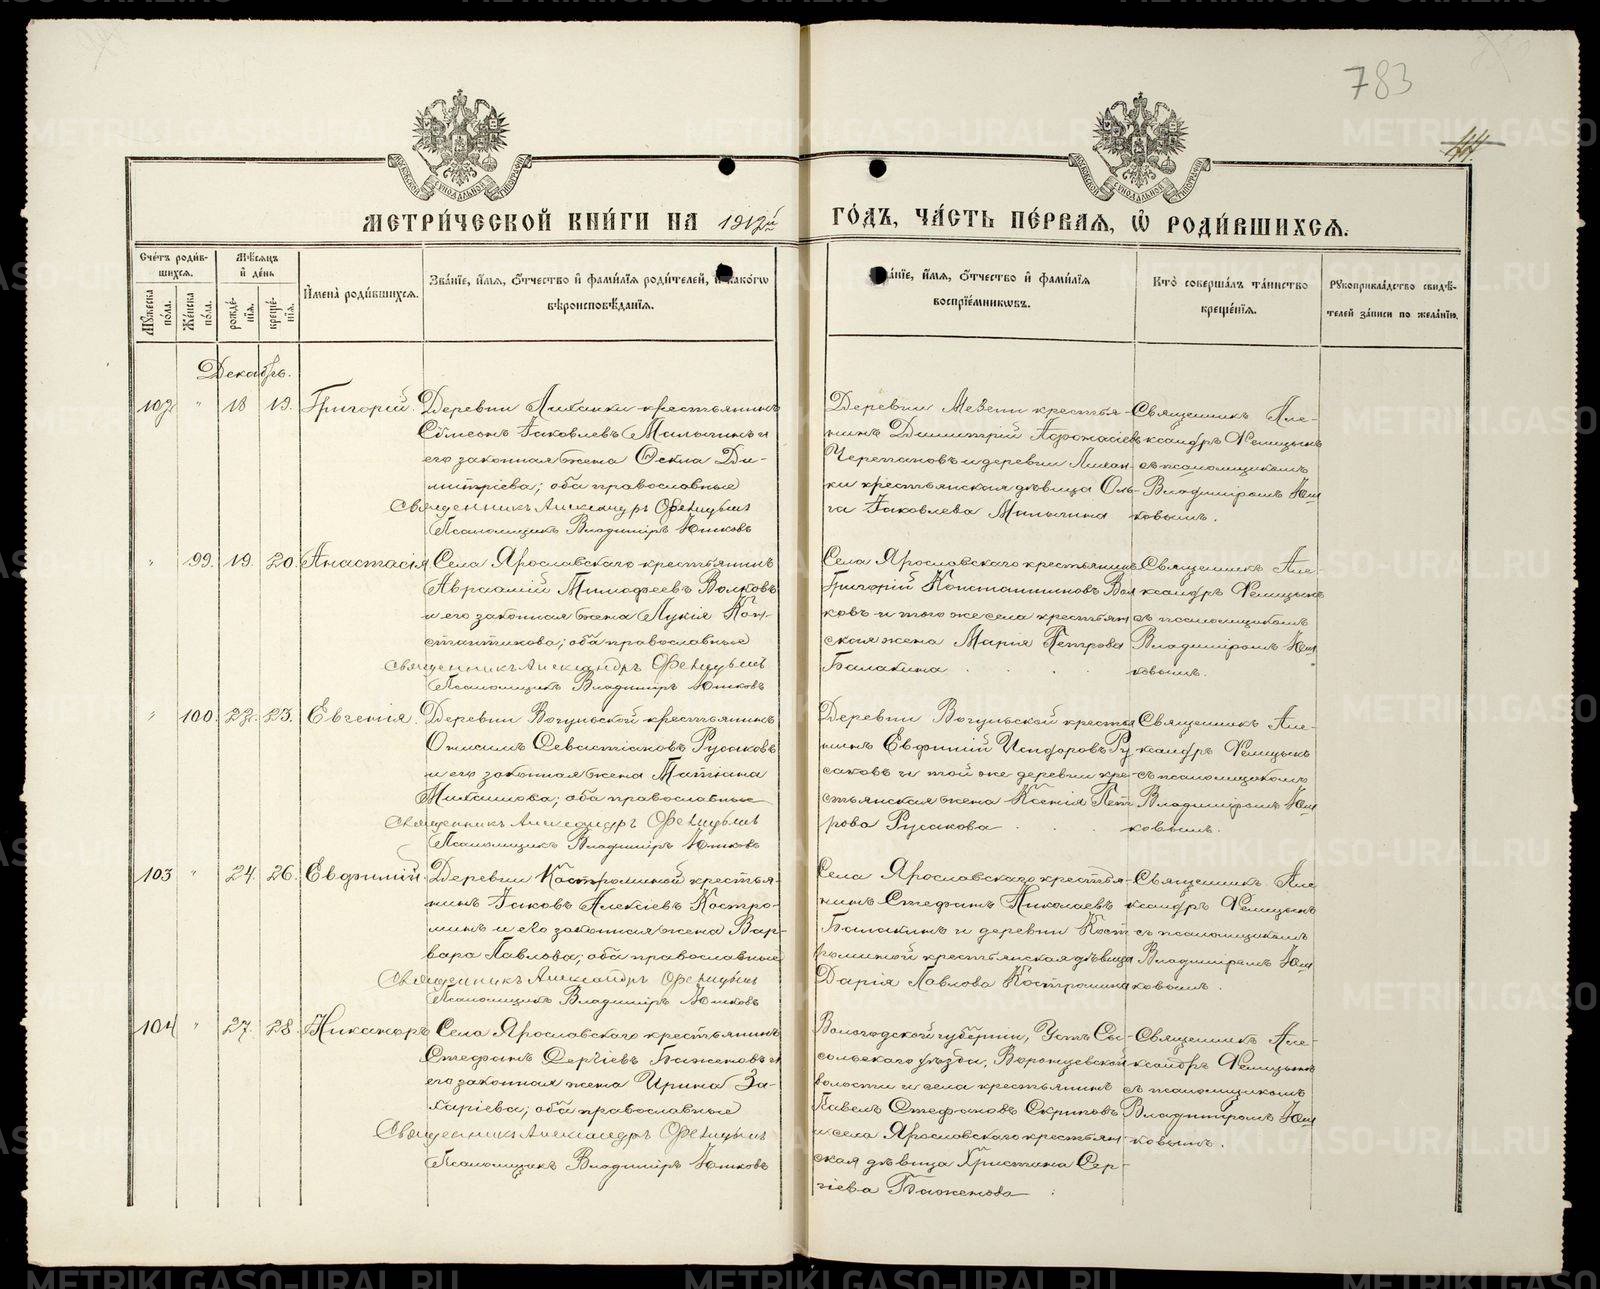 783
МОСКОВСКОЙ СѴНОДАЛЬНОЙ ТИПОГРАФІИ
МОСКОВСКОЙ СѴНОДАЛЬНОЙ ТИПОГРАФІИ
МЕТРИ́ЧЕСКОЙ КНИ́ГИ НА 1912й
ГО́ДЪ, ЧА́СТЬ ПЕ́РВАѦ, Ѡ҆ РОДИ́ВШИХСѦ.
Сче́тъ роди́в-
шихсѧ.
Мꙋ́жеска по́ла.
Же́нска по́ла.
Мѣ́сѧцъ
и҆ де́нь
рожде́-
нїѧ.
креще́-
нїѧ.
И҆мена̀ роди́вшихсѧ.
Зва́нїе, и҆́мѧ, ѻ҆́тчество и҆ фами́лїѧ роди́телей, и҆ како́гѡ
вѣроисповѣ́данїѧ.
зва́нїе, и҆́мѧ, ѻ҆́тчество и҆ фами́лїѧ
воспрїе́мникѡвъ.
Кто̀ соверша́лъ та́инство
креще́нїѧ.
Рꙋкоприкла́дство свидѣ́-
телей за́писи по жела́нїю.
Декабрь.
102 " 18 19. Григорій. Деревни крестьянинъ
Сѵмеонъ Іаковлевъ Малыгинъ и
его законная жена Ѳекла Ди-
митріева; оба православные
Священникъ Александръ Фелицынъ
Псаломщикъ Владиміръ Юшковъ
Деревни Мезени крестья-
нинъ Димитрій Афонасіевъ
Черепановъ и деревни
ки крестьянская дѣвица Оль-
га Іаковлева Малыгина
Священникъ Але-
ксандръ Фелицынъ
съ псаломщикомъ
Владиміромъ Юш
ковымъ.
" 99. 19. 20. Анастасія Села Ярославскаго крестьянинъ
Авраамій Тимофеевъ Волковъ
и его законная жена Лукія Кон-
стантинова; оба православные
Священникъ Александръ Фелицынъ
Псаломщикъ Владиміръ Юшковъ
Села Ярославскаго крестьянинъ
Григорій Константиновъ Вол
ковъ и того же села крестьян
ская жена Марія Петрова
Балакина
Священникъ Але-
ксандръ Фелицынъ
съ псаломщикомъ
Владиміромъ Юш
ковымъ.
" 100. 22. 23. Евгенія. Деревни Вогульской крестьянинъ
Онисимъ Севастіановъ Русаковъ
и его законная жена Татіана
оба православные
Священникъ Александръ Фелицынъ
Псаломщикъ Владиміръ Юшковъ
Деревни Вогульской крестья
нинъ Евфимій Исидоровъ Ру
саковъ и той же деревни кре-
стьянская жена Ксенія Пет
рова Русакова
Священникъ Але-
ксандръ Фелицынъ
съ псаломщикомъ
Владиміромъ Юш
ковымъ.
103 " 24. 26. Евфимій. Деревни Костроминой крестья-
нинъ Іаковъ Алексіевъ Костро-
минъ и его законная жена Вар-
вара Павлова; оба православные
Священникъ Александръ Фелицынъ
Псаломщикъ Владиміръ Юшковъ
Села Ярославскаго крестья-
нинъ Стефанъ Николаевъ
Балакинъ и деревни Кост
роминой крестьянская дѣвица
Дарія Павлова Костромина
Священникъ Але
ксандръ Фелицынъ
съ псаломщикомъ
Владиміромъ Юш
ковымъ.
104 " 27. 28. Никаноръ Села Ярославскаго крестьянинъ
Стефанъ Сергіевъ Баженовъ и
его законная жена Ирина За-
харіева; оба православные
Священникъ Александръ Фелицынъ
Псаломщикъ Владиміръ Юшковъ
Вологодской губерніи, Усть Сы-
сольскаго уѣзда, Воронцевской
волости и села крестьянинъ
Павелъ Стефановъ Скриповъ
и села Ярославскаго крестьян-
ская дѣвица Христина Сер-
гіева Баженова
Священникъ Але-
ксандръ Фелицынъ
съ псаломщикомъ
Владиміромъ Юш
ковымъ.
METRIKI.GASO-URAL.RU